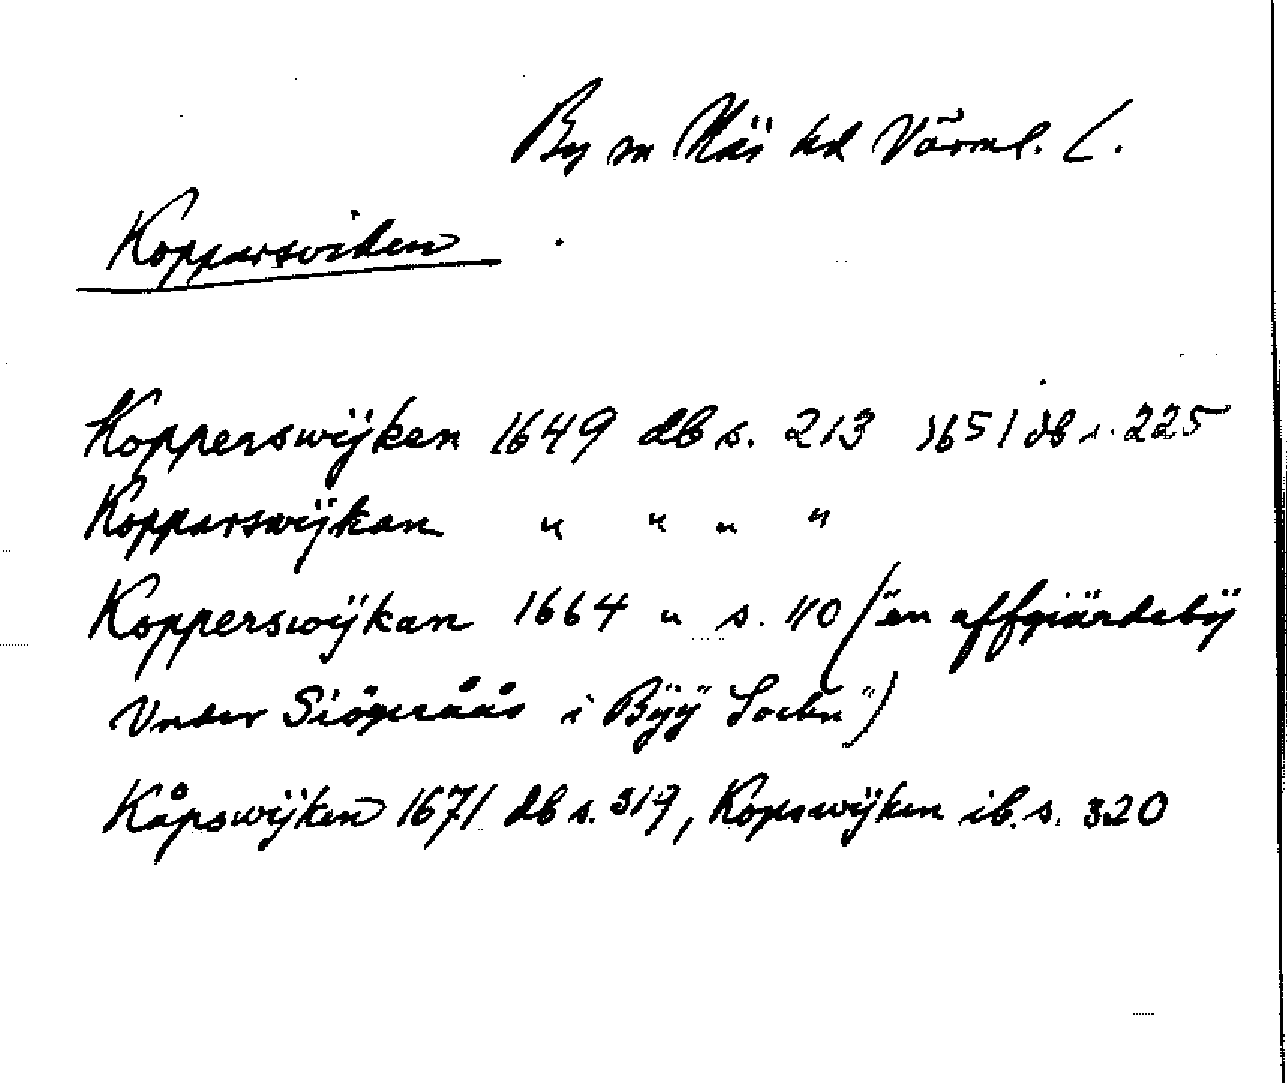 By sn Näs hd Värml. L.
Kopparsviken
Kopperswijken 1649 db s. 213 1651 db s. 225
Kopparswijkan " " " "
Kopperswijkan 1664 " s. 110 ("en affgiärdebÿ
Under Siögeråås i Bÿÿ Sockn")
Kåpswijken 1671 db s. 319, Kopswijken ib. s. 320